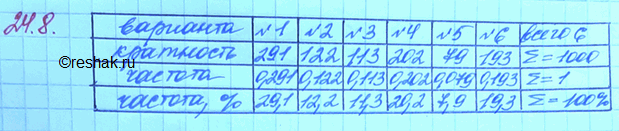 24.8.
варианта №1 №2 №3 №4 №5 №6 всего 6
кратность 291 122 113 202 79 193 Σ=1000
частота 0,291 0,122 0,113 0,202 0,079 0,193 Σ=1
частота, % 29,1 12,2 11,3 20,2 7,9 19,3 Σ=100%
©reshak.ru